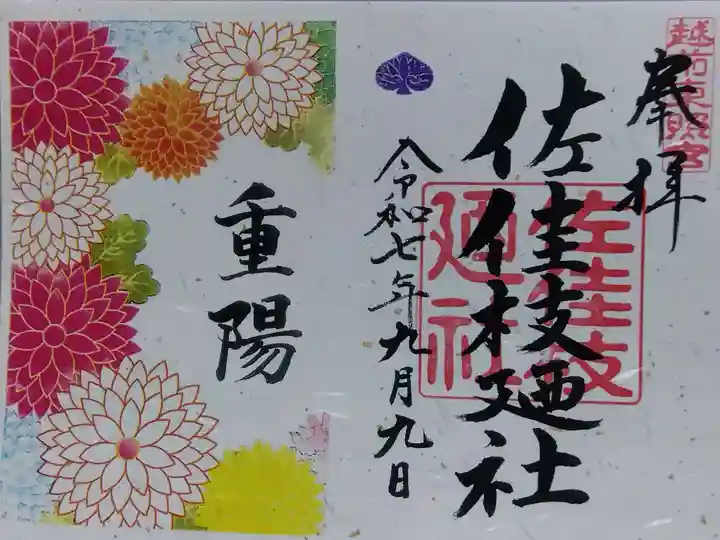 越前東照宮
奉拝
佐佳枝廼社
佐佳枝
廼社
令和七年九月九日
重陽